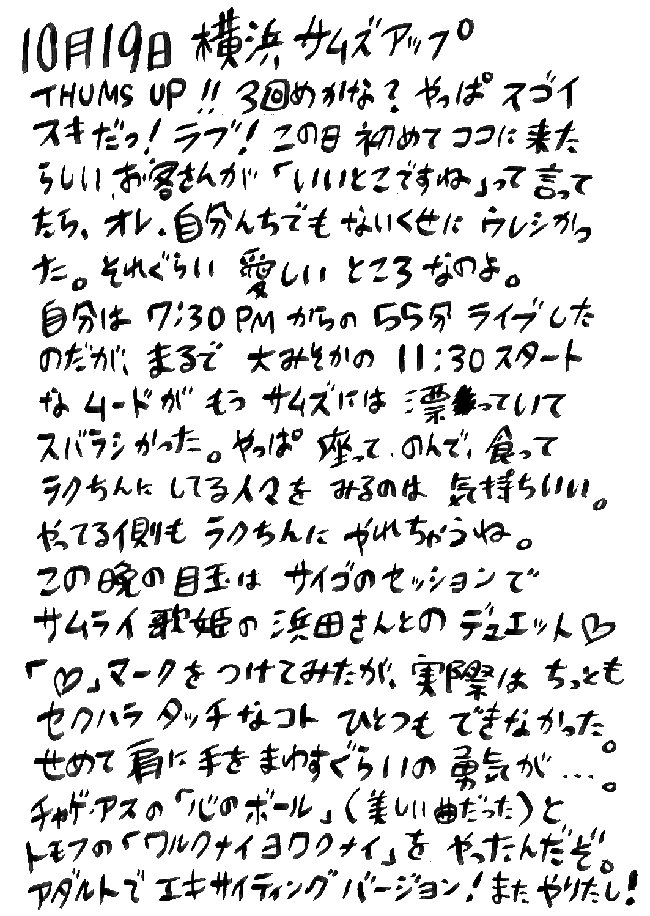 10月19日 横浜 サムズアップ
THUMS UP !! 3回めかな? やっぱ スゴイ
スキだっ! ラブ! この日 初めて ココに 来た
らしい お客さんが 「いいとこですね」って 言って
たら、オレ、自分んちでも ないくせに ウレシかっ
た。それぐらい 愛しい ところ なのよ。
自分は 7:30 PM からの 55分 ライブした
のだが、まるで 大みそかの 11:30 スタート
な ムードが もう サムズには 漂っていて
スバラシかった。やっぱ 座って、のんで、食って
ラクちんに してる 人々を みるのは 気持ちいい。
やってる側も ラクちんに やれちゃうね。
この 晩の 目玉は サイゴのセッションで
サムライ 歌姫の 浜田さんとの デュエット♡
「♡」マークを つけてみたが、実際は ちっとも
セクハラ タッチなコト ひとつも できなかった。
せめて 肩に 手を まわすぐらいの 勇気が…。
チャゲ・アスの 「心のボール」(美しい曲だった)と
トモフの「ワルクナイ ヨワクナイ」を やったんだぞ。
アダルトで エキサイティング バージョン! また やりたし!